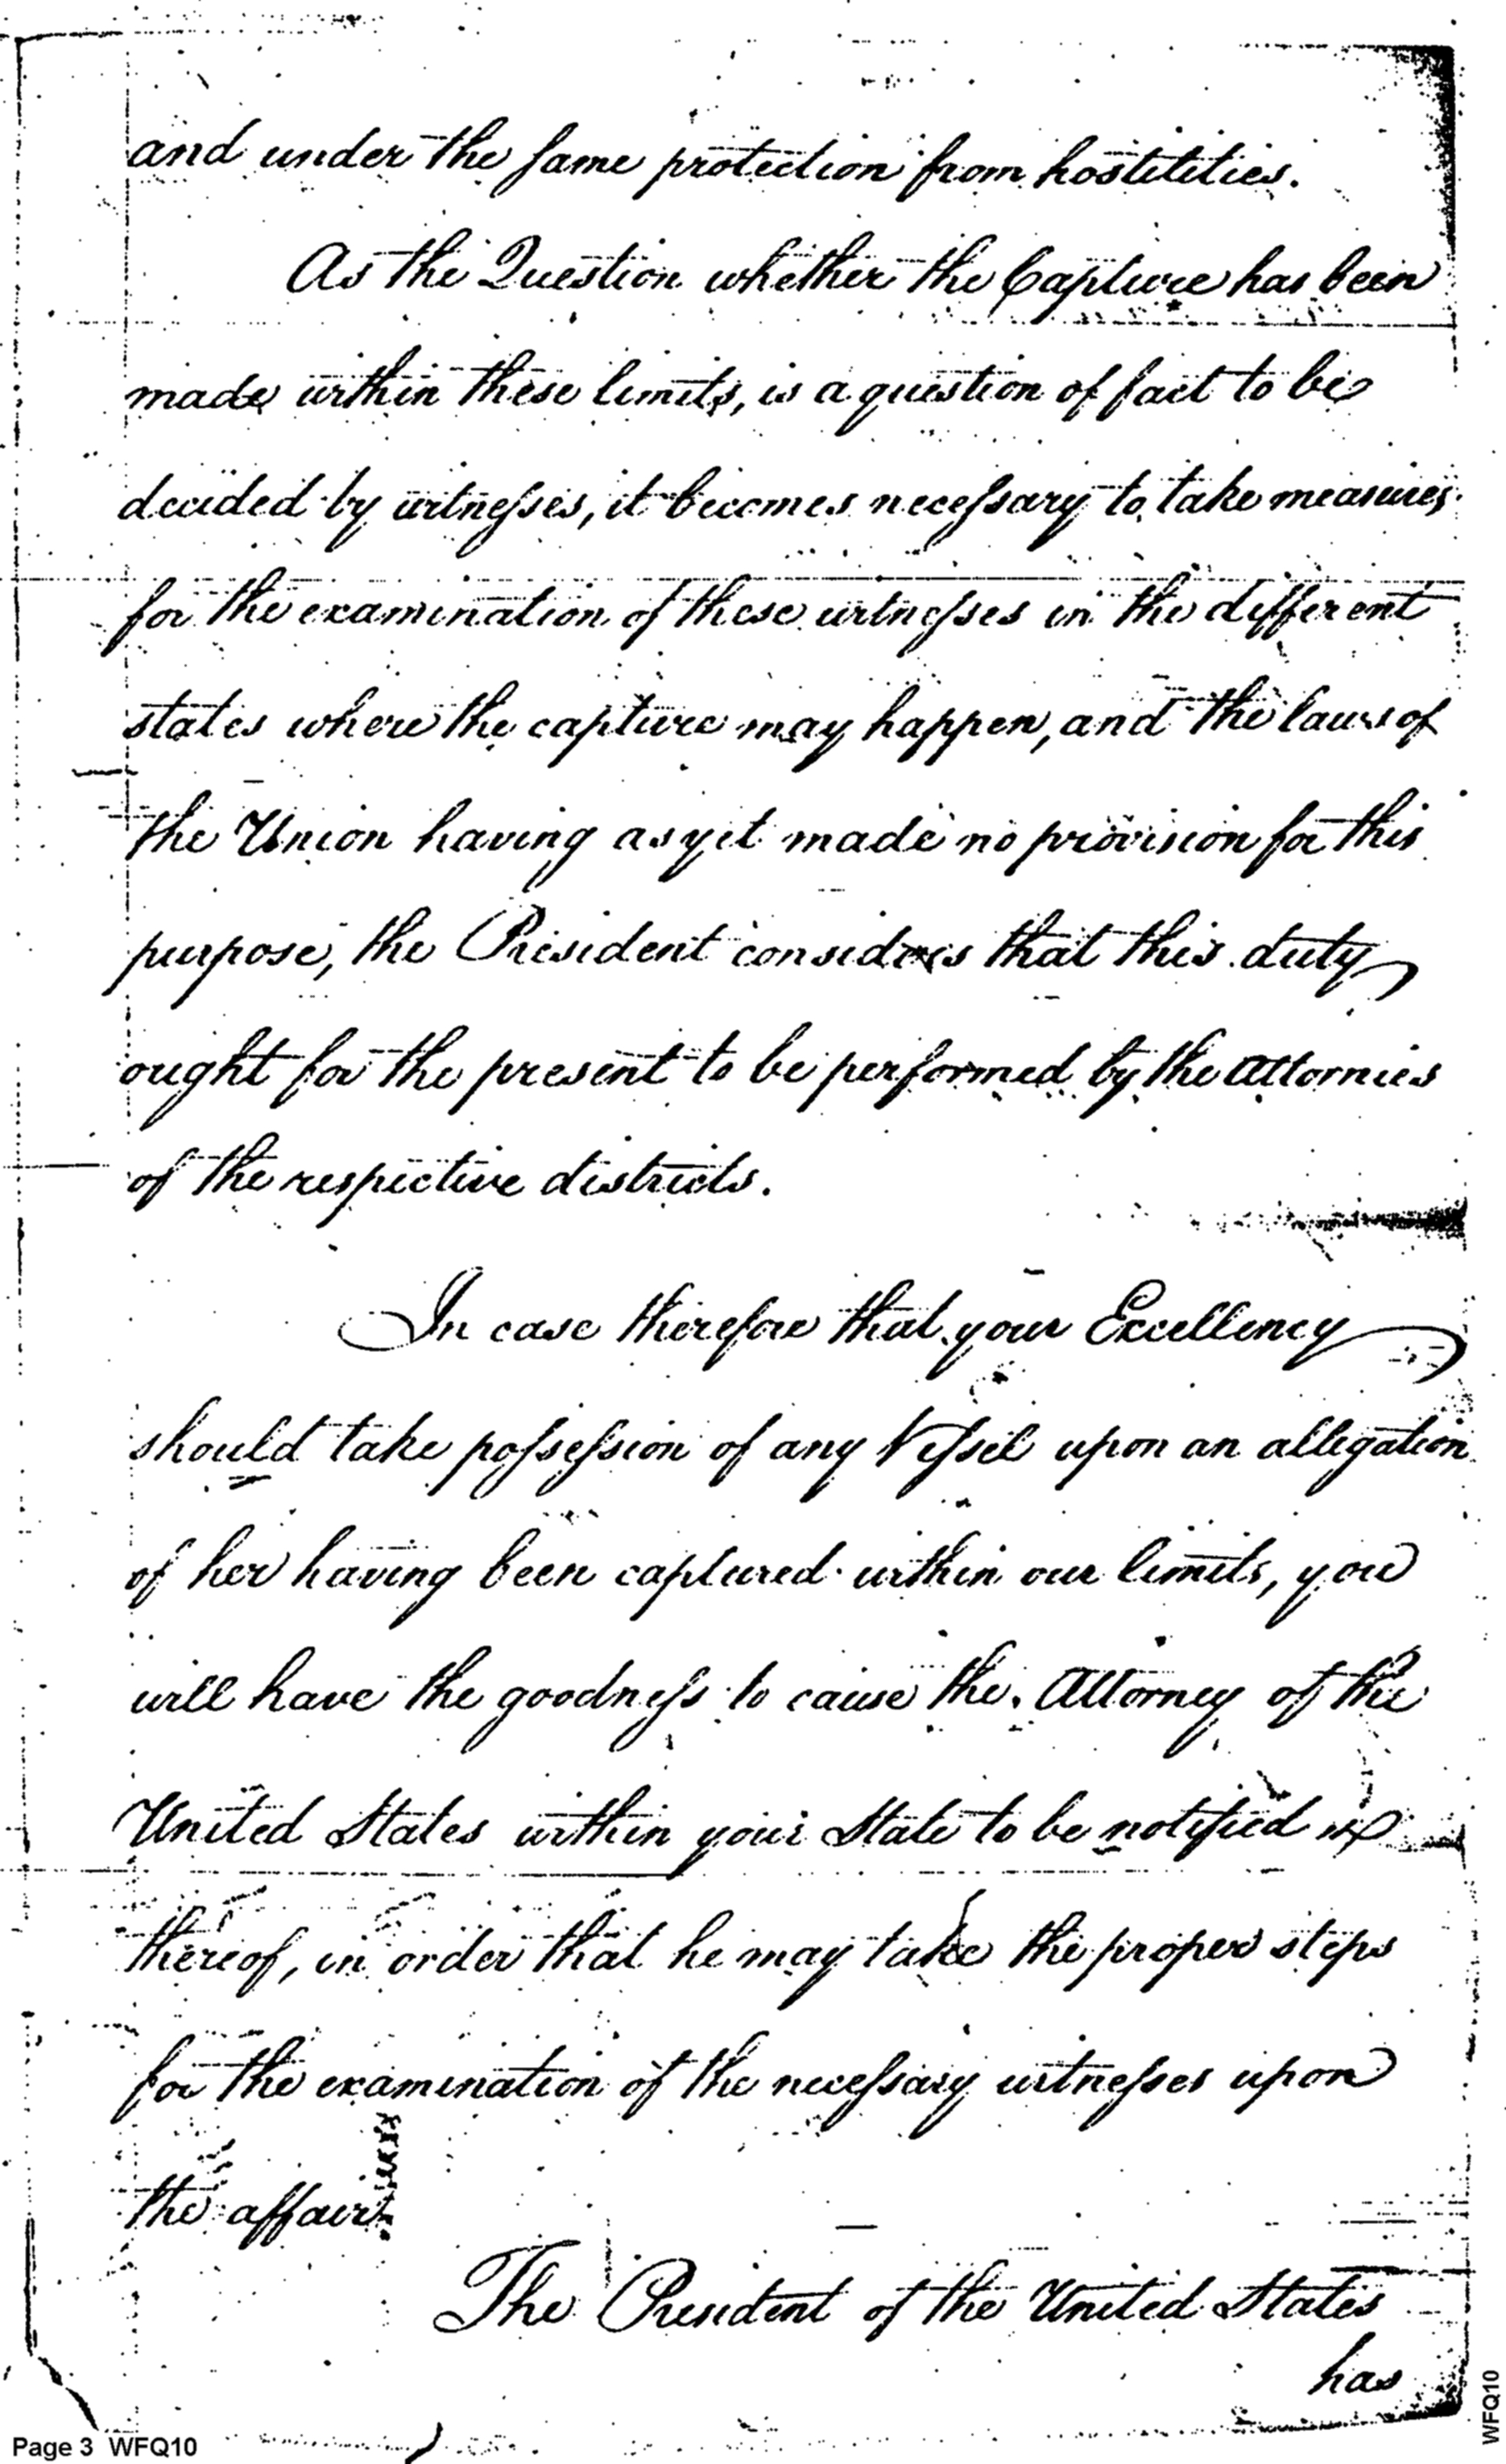 and under the same protection from hostilities.
As the Question whether the Capture has been
made within these limits, is a question of fact to be
decided by witnesses, it becomes necessary to take measures
for the examination of these witnesses in the different
states where the capture may happen, and the laws of
the Union having as yet made no provision for this
purpose, the President considers that this duty
ought for the present to be performed by the Attornies
of the respective districts.
In case therefore that your Excellency
should take possession of any Vessel upon an allegation
of her having been captured within our limits, you
will have the goodness to cause the Attorney of the
United States within your State to be notified
thereof, in order that he may take the proper steps
for the examination of the necessary witnesses upon
the affair.
The President of the United States
has
Page 3 WFQ10
WFQ10